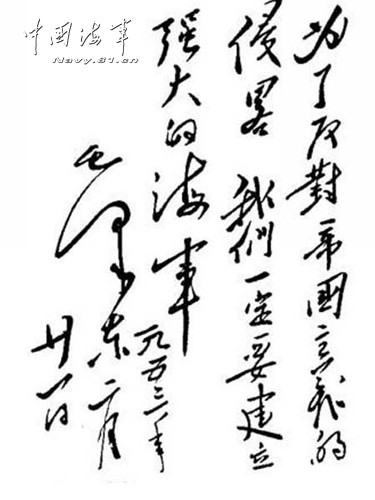 中国海军
Navy.81.cn
为了反對帝國主義的
侵畧 我們一定要建立
强大的海軍
一九五三年
毛泽东 二月
廿一日